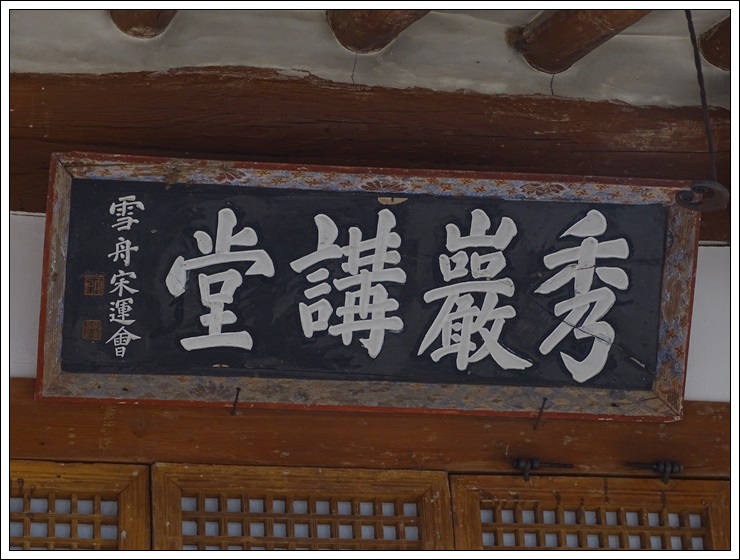 秀巖講堂
雪舟宋運會